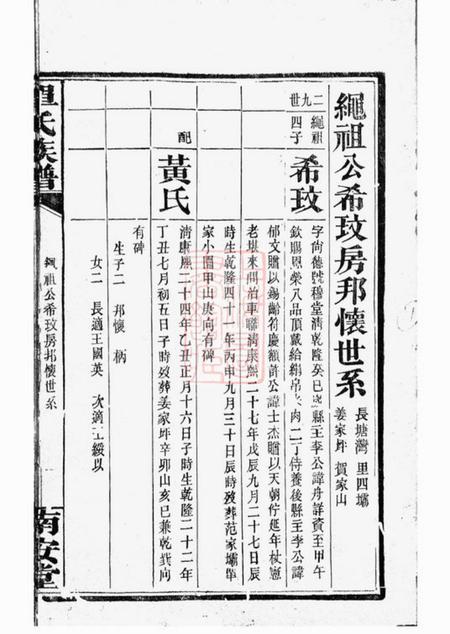 繩祖公希玟房邦懷世系
長塘灣 里四壩
姜家坪 賀家山
二九世
繩祖四子
希玟
字尚德號穆堂清乾隆癸巳縣主李公諱舟詳資至甲午
欽賜恩榮八品頂戴給絹帛米肉二丁侍養後縣主李公諱
郁文贈以錫齡符慶額許公諱士杰贈以天朝佇延年杖
老堪來問治車聯清康熙二十七年戊辰九月二十七日辰
時生乾隆四十一年丙申九月三十日辰時歿葬范家壩單
家小園甲山庚向有碑
配
黃氏
清康熙二十四年乙丑正月十六日子時生乾隆二十二年
丁丑七月初五日子時歿葬姜家坪辛卯山亥巳兼乾巽向
有碑
生子二 邦懷 柄
女二 長適王國英 次適王綬以
氏族譜
繩祖公希玟房邦懷世系
南安堂